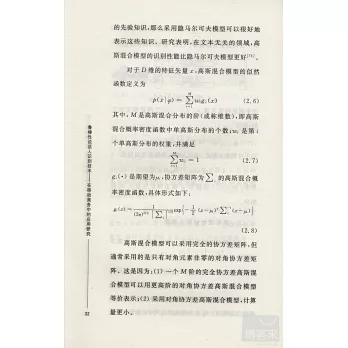 的先验知识,那么采用隐马尔可夫模型可以很好地
表示这些知识。研究表明,在文本无关的领域,高
斯混合模型的识别性能比隐马尔可夫模型更好
对于D维的特征矢量x,高斯混合模型的似然
函数定义为
p(x|φ)=∑wᵢgᵢ(x) (2.6)
其中,M是高斯混合模型的阶(或称维数),即高斯
混合概率密度函数中单高斯分布的个数;wᵢ是第i
个单高斯分布的权重,并满足
∑wᵢ=1 (2.7)
gᵢ(·)是期望为μᵢ,协方差矩阵为∑ᵢ的高斯混合概
率密度函数,具体形式如下:
(2.8)
高斯混合模型可以采用完全的协方差矩阵,但
通常采用的是只有对角元素非零的对角协方差矩
阵。这是因为:(1)一个M阶的完全协方差高斯混
合模型可以用更高阶的对角协方差高斯混合模型
等价表示;(2)采用对角协方差高斯混合模型,计算
量更小。
鲁棒性说话人识别技术
32
博客來